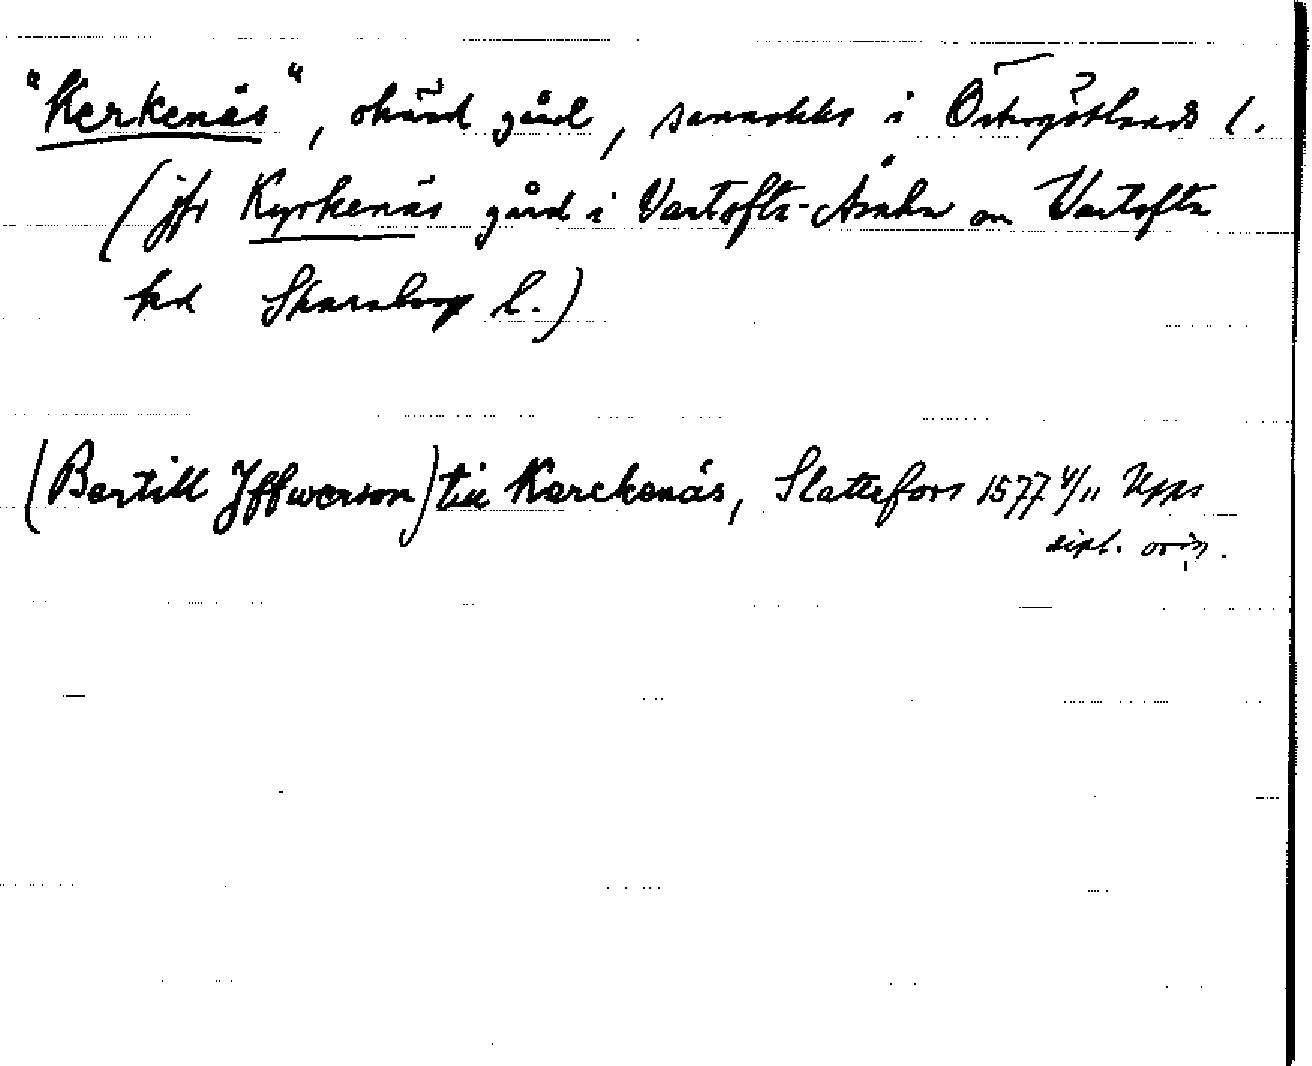 "Kerkenäs", okänd gård, sannolikt i Östergötlands l.
(jfr Kyrkenäs gård i Vartofta-Åsaka sn Vartofta
hd Skaraborgs l.)
(Bertill Jffwerson) till Kerckenäs, Slattefors 1577 4/11 Upps
dipl. orig.